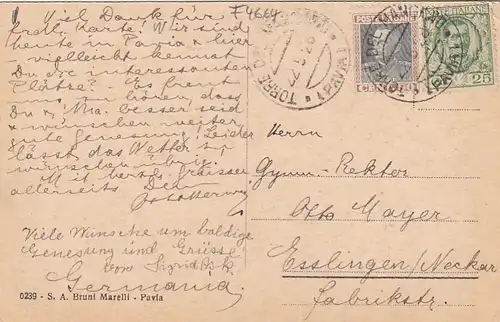 F4664
Viel Dank für
frdl. Karte! Wir sind
heute in Pavia & hier
vielleicht kennst
Du die interessanten
Plätze. Es freut
uns zu hören, dass
Du & Ma. besser seid
& wünschen weiter
gute Genesung. Leider
lässt das Wetter zu
wünschen übrig.
Mit herzl. Grüssen
allerseits Dein
Viele Wünsche um baldige
Genesung und Grüsse
von Sigrid
Germania.
0239 - S. A. Bruni Marelli - Pavia
TORRE D
(PAVIA)
POSTE ITALIANE
25
Herrn
Gymn.-Rektor
Otto Mayer
Esslingen/Neckar
Fabrikstr.